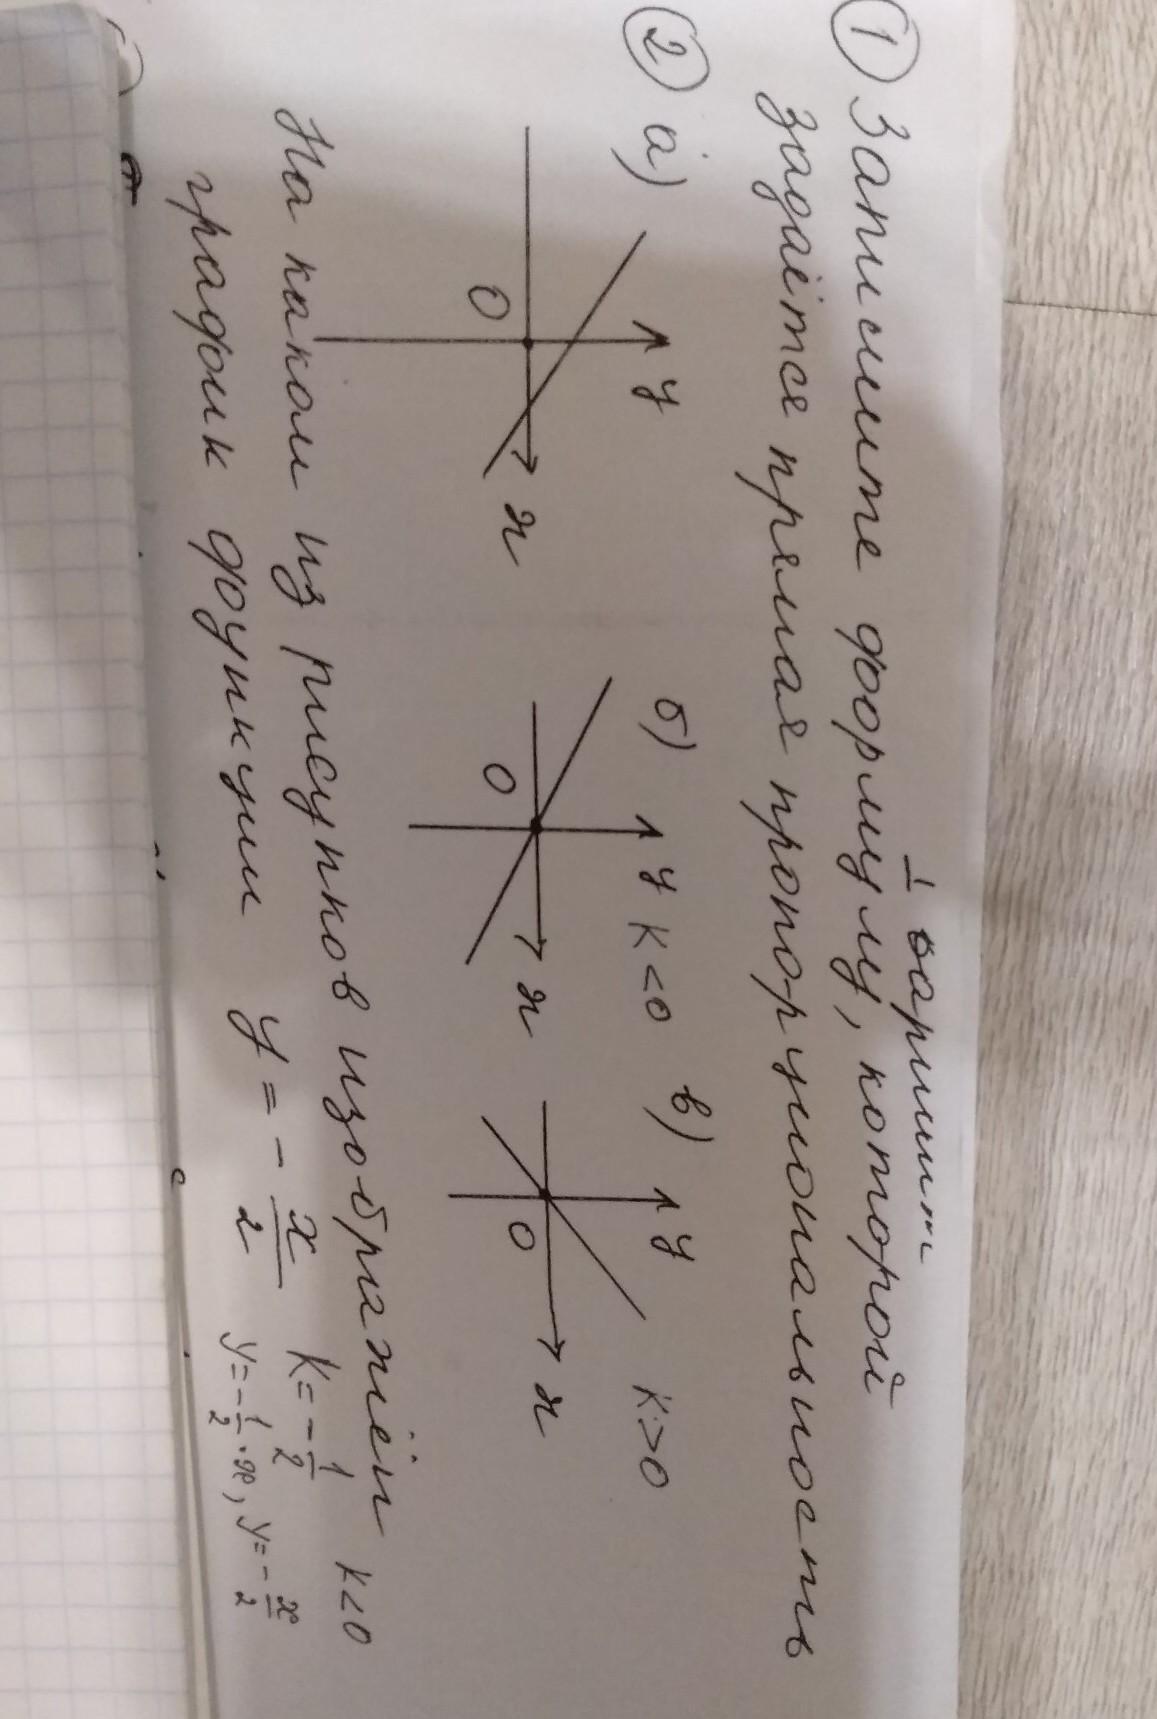 1 вариант
① Запишите формулу, которой
задаётся прямая пропорциональность
② а) б) в)
y y K<0 y K>0
0 x 0 x 0 x
На каком из рисунков изображён K<0
график функции y = - x/2 K = - 1/2
y = - 1/2 · x, y = - x/2